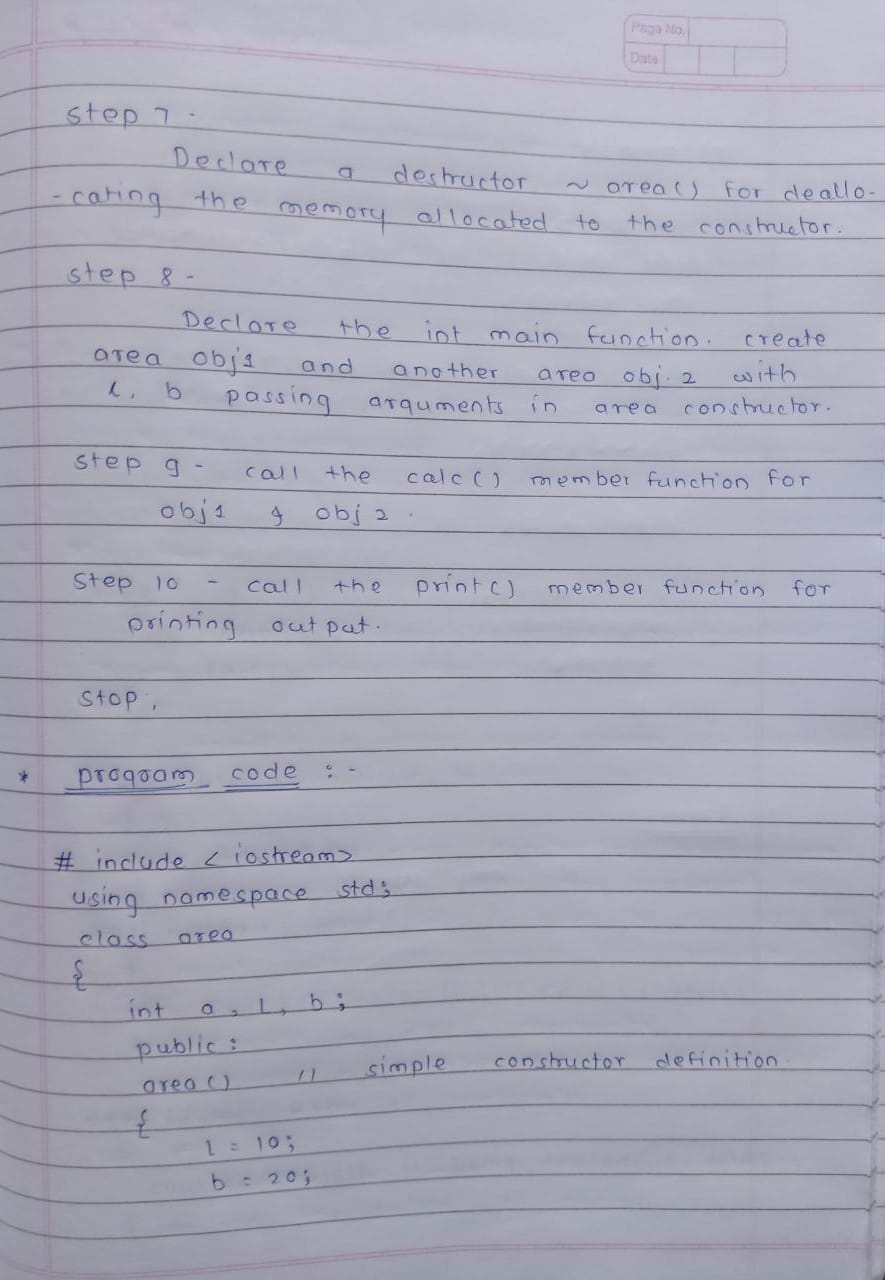 Page No.
Date
step 7 -
Declare a destructor ~ area() for deallo-
-cating the memory allocated to the constructor.
step 8 -
Declare the int main function. create
area obj1 and another area obj. 2 with
l, b passing arguments in area constructor.
step 9 - call the calc() member function for
obj1 & obj 2.
Step 10 - call the print() member function for
printing output.
Stop.
* program code :-
# include <iostream>
using namespace std;
class area
{
int a, l, b;
public:
area() // simple constructor definition.
{
l = 10;
b = 20;